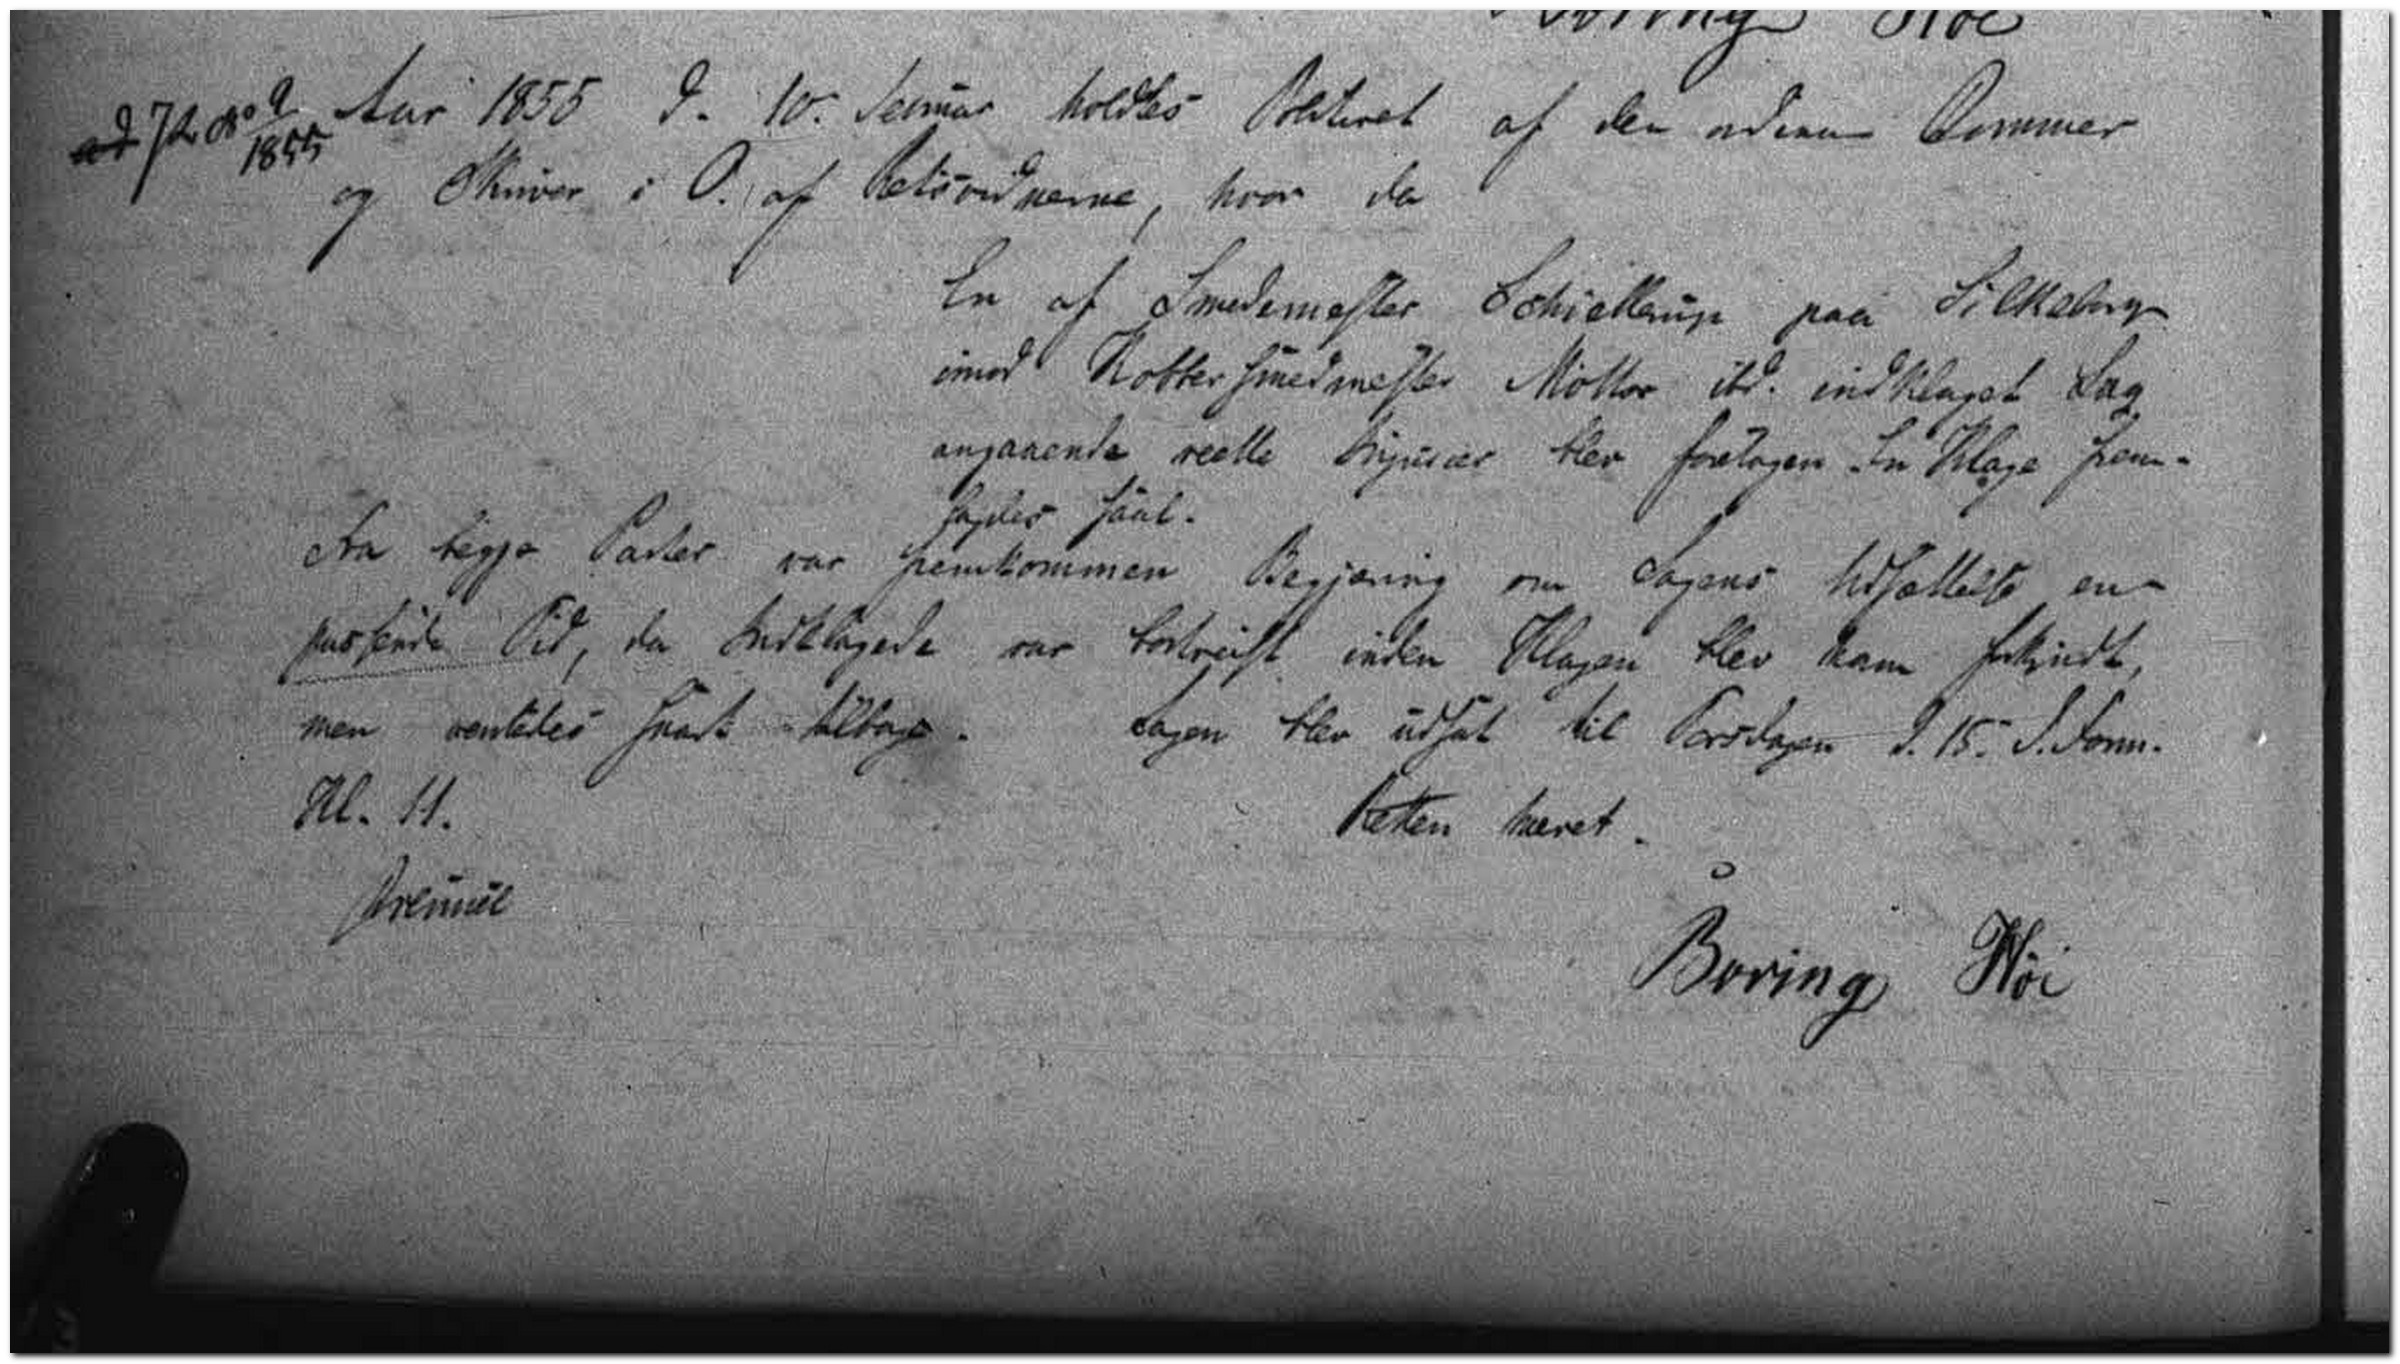 Boring Höi
ad J. L. No 9/1855
Aar 1855 d. 10. Januar holdtes Politiret af den ordinære Dommer
og Skriver i O. af Retsvidnerne, hvor da
En af Smedemester Schiellerup paa Silkeborg
imod Kobbersmedmester Möller ibd. indklaget Sag
angaaende reelle Injurier blev foretagen. En Klage frem-
lagdes saal.
Fra begge Parter var fremkommen Begjæring om Sagens Udsættelse en
passende Tid, da Indklagede var bortreist inden Klagen blev ham forkyndt,
men ventedes snart tilbage. Sagen blev udsat til Torsdagen d. 15. d. Form.
Kl. 11. Retten hævet.
Boring Höi